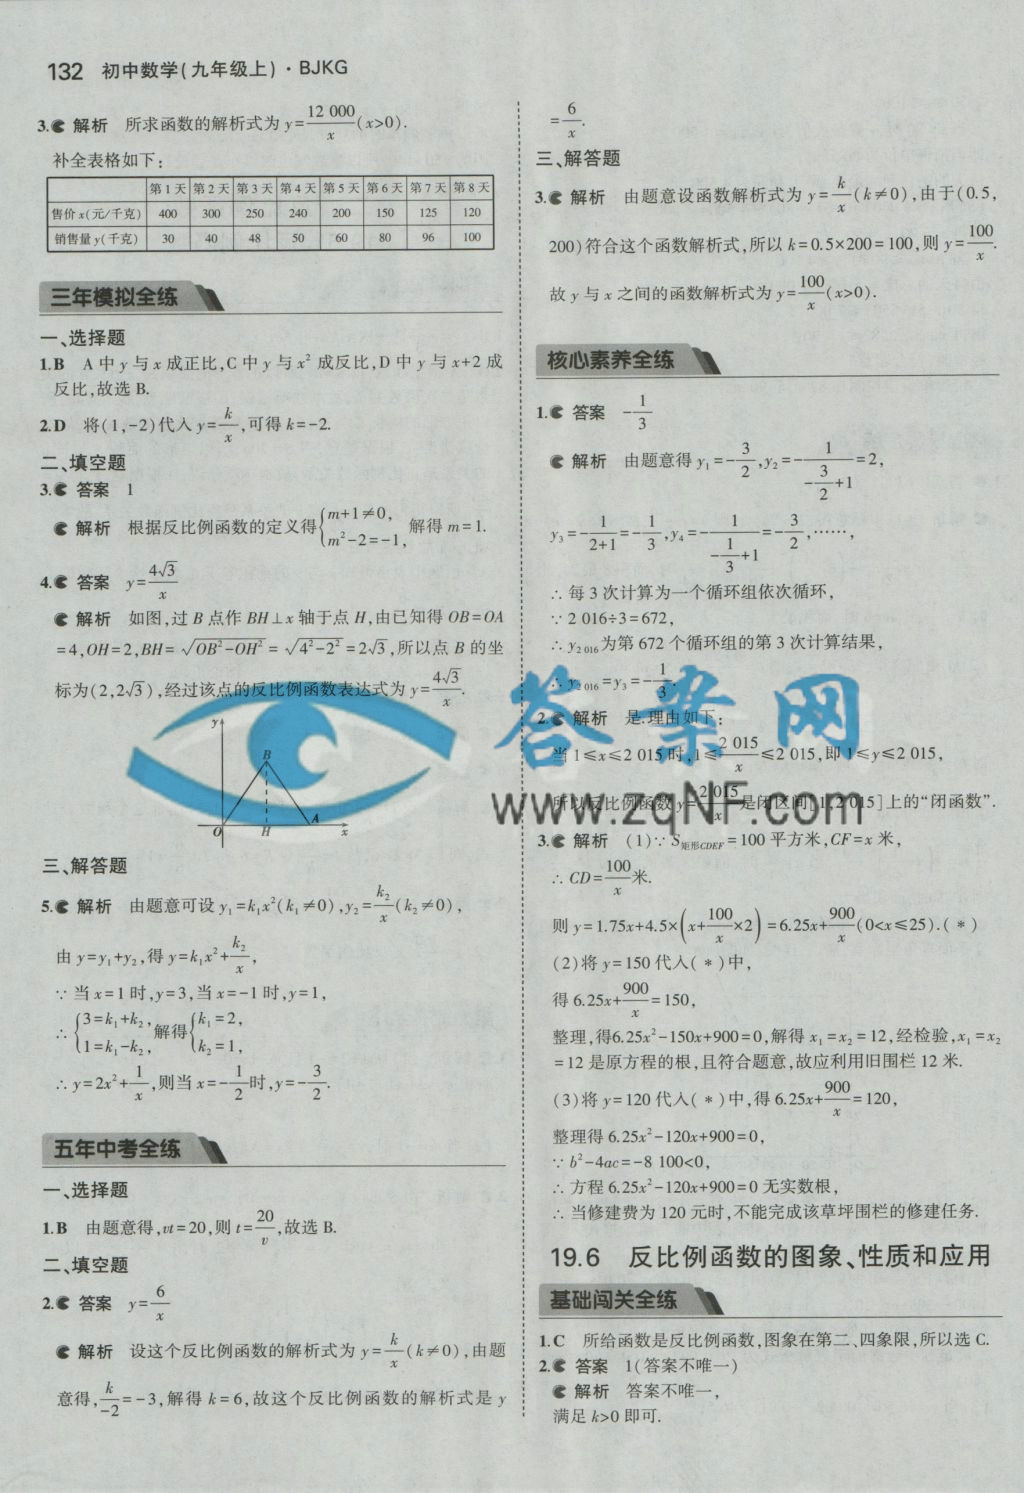 132 初中数学(九年级上)·BJKG
3. 解析 所求函数的解析式为 y=12 000/x(x>0).
补全表格如下:
第1天 第2天 第3天 第4天 第5天 第6天 第7天 第8天
售价x(元/千克) 400 300 250 240 200 150 125 120
销售量y(千克) 30 40 48 50 60 80 96 100
三年模拟全练
一、选择题
1.B A中y与x成正比,C中y与x²成反比,D中y与x+2成
反比,故选B.
2.D 将(1,-2)代入y=k/x,可得k=-2.
二、填空题
3. 答案 1
解析 根据反比例函数的定义得{m+1≠0, m²-2=-1, 解得m=1.
4. 答案 y=4√3/x
解析 如图,过B点作BH⊥x轴于点H,由已知得OB=OA
=4,OH=2,BH=√(OB²-OH²)=√(4²-2²)=2√3,所以点B的坐
标为(2,2√3),经过该点的反比例函数表达式为y=4√3/x.
y
B
O H A x
三、解答题
5. 解析 由题意可设y₁=k₁x²(k₁≠0),y₂=k₂/x(k₂≠0),
由y=y₁+y₂,得y=k₁x²+k₂/x,
∵当x=1时,y=3,当x=-1时,y=1,
∴{3=k₁+k₂, 1=k₁-k₂, 解得{k₁=2, k₂=1,
∴y=2x²+1/x,则当x=-1/2时,y=-3/2.
五年中考全练
一、选择题
1.B 由题意得,vt=20,则t=20/v,故选B.
二、填空题
2. 答案 y=6/x
解析 设这个反比例函数的解析式为y=k/x(k≠0),由题
意得,k/-2=-3,解得k=6,故这个反比例函数的解析式是y
=6/x.
三、解答题
3. 解析 由题意设函数解析式为y=k/x(k≠0),由于(0.5,
200)符合这个函数解析式,所以k=0.5×200=100,则y=100/x.
故y与x之间的函数解析式为y=100/x(x>0).
核心素养全练
1. 答案 -1/3
解析 由题意得y₁=-3/2,y₂=-1/(-3/2+1)=2,
y₃=-1/(2+1)=-1/3,y₄=-1/(-1/3+1)=-3/2,……,
∴每3次计算为一个循环组依次循环,
∵2 016÷3=672,
∴y₂ ₀₁₆为第672个循环组的第3次计算结果,
∴y₂ ₀₁₆=y₃=-1/3.
2. 解析 是.理由如下:
当1≤x≤2 015时,1≤2 015/x≤2 015,即1≤y≤2 015,
所以反比例函数y=2 015/x是闭区间[1,2 015]上的“闭函数”.
3. 解析 (1)∵S矩形CDEF=100平方米,CF=x米,
∴CD=100/x米.
则y=1.75x+4.5×(x+100/x×2)=6.25x+900/x(0<x≤25).(*)
(2)将y=150代入(*)中,
得6.25x+900/x=150,
整理,得6.25x²-150x+900=0,解得x₁=x₂=12,经检验,x₁=x₂
=12是原方程的根,且符合题意,故应利用旧围栏12米.
(3)将y=120代入(*)中,得6.25x+900/x=120,
整理得6.25x²-120x+900=0,
∵b²-4ac=-8 100<0,
∴方程6.25x²-120x+900=0无实数根,
∴当修建费为120元时,不能完成该草坪围栏的修建任务.
19.6 反比例函数的图象、性质和应用
基础闯关全练
1.C 所给函数是反比例函数,图象在第二、四象限,所以选C.
2. 答案 1(答案不唯一)
解析 答案不唯一,
满足k>0即可.
答案网
www.zqNF.com